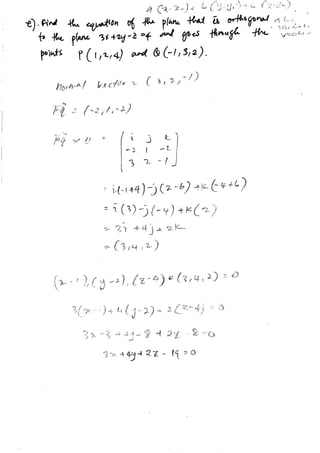 a(x-x₀)+b(y-y₀)+c(z-z₀)
E). Find the equation of the plane that is orthogonal
to the plane 3x+2y-z=4 and goes through the
points P(1,2,4) and Q(-1,3,2).
Normal vector = (3,2,-1)
PQ = (-2,1,-2)
PQ × n = | i j k
-2 1 -2
3 2 -1 |
= i(-1+4)-j(2-6)+k(-4+6)
= i(3)-j(-4)+k(2)
= 3i+4j+2k
= (3,4,2)
(x-1),(y-2),(z-4)•(3,4,2)=0
3(x-1)+4(y-2)+2(z-4)=0
3x-3+4y-8+2z-8=0
3x+4y+2z-19=0